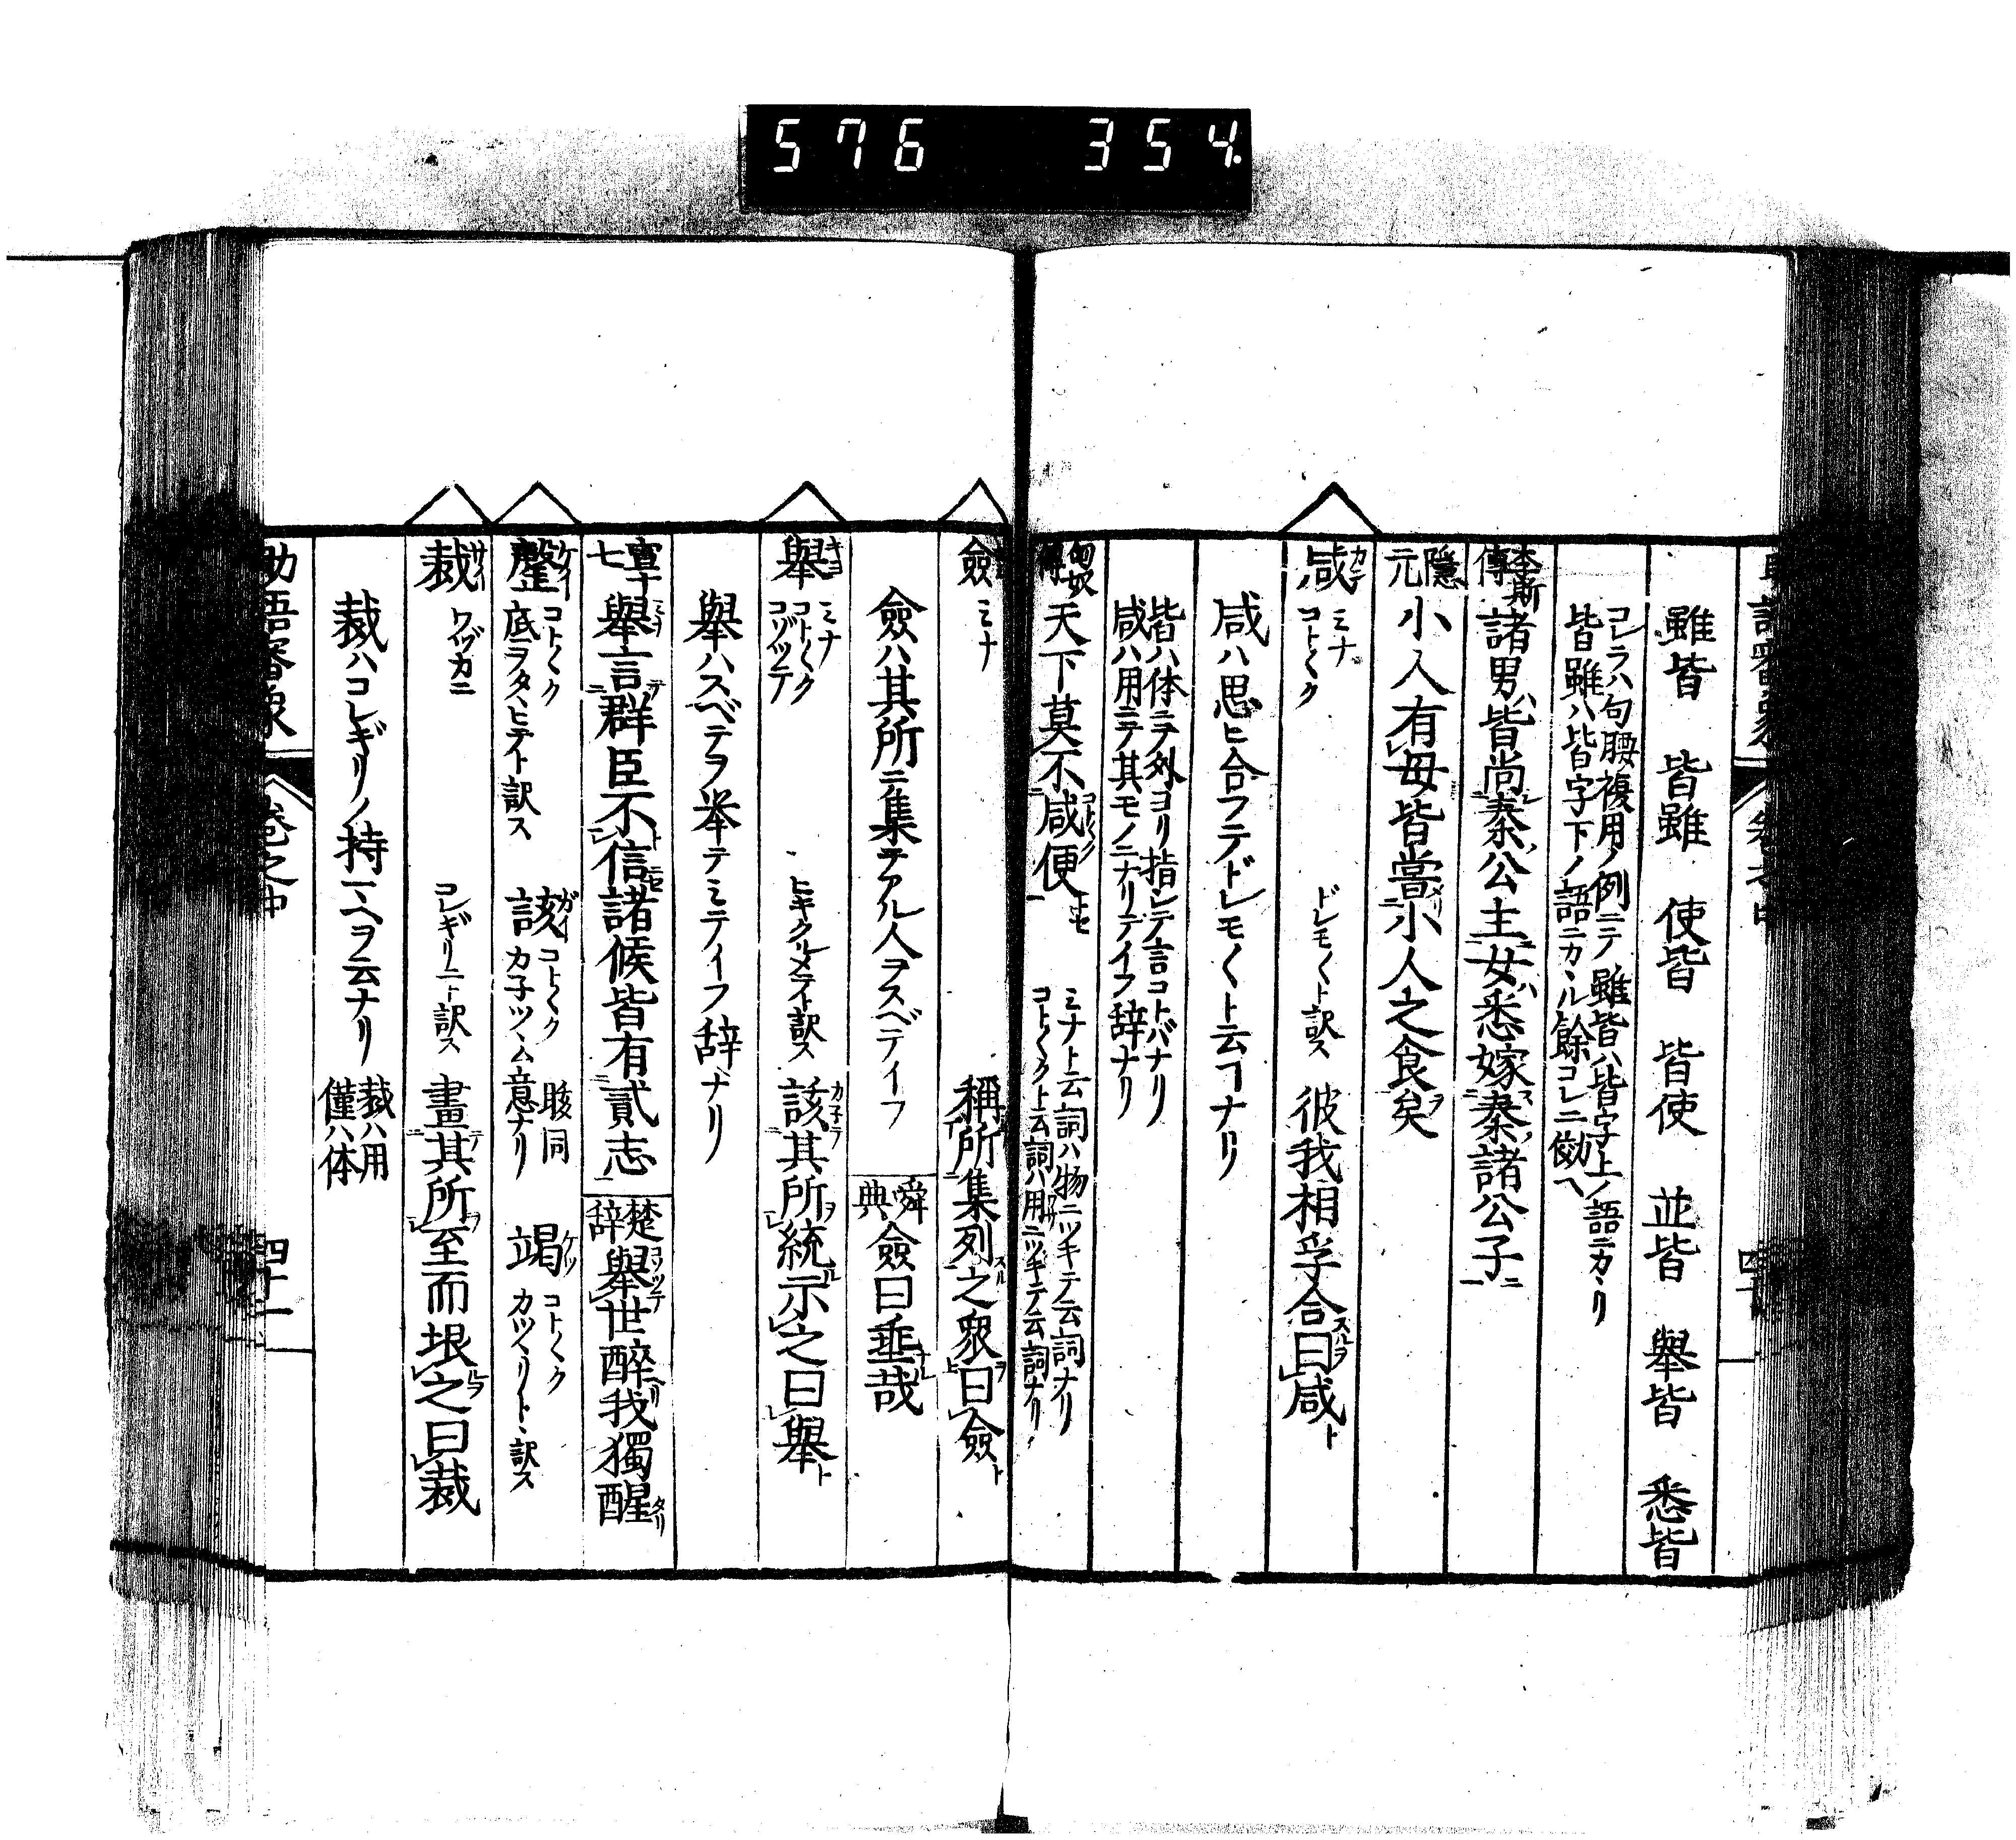 576 354
雖皆 皆雖 使皆 皆使 並皆 舉皆 悉皆
コレラハ句腰複用ノ例ニテ雖皆ハ皆字上ノ語ニカヽリ
皆雖ハ皆字下ノ語ニカヽル餘コレニ傚ヘ
李斯傳 諸男皆尚秦公主女悉嫁秦諸公子
隱元 小人有母皆嘗小人之食矣
咸 ミナ コト〱ク ドレモ〱ト訳ス 彼我相孚合曰咸
咸ハ思ヒ合フテドレモ〱ト云フヿナリ
皆ハ体ニテ外ヨリ指シテ言コトバナリ
咸ハ用ニテ其モノニナリテイフ辞ナリ
匈奴傳 天下莫不咸便 ミナト云詞ハ物ニツキテ云詞ナリ
コト〱クト云詞ハ用ニツキテ云詞ナリ
僉 ミナ 稱所集列之衆曰僉
僉ハ其所ニ集テアル人ヲスベテイフ 舜典 僉曰垂哉
舉 ミナ コト〱ク コゾツテ ヒキクルメテト訳ス 該其所統示之曰舉
舉ハスベテヲ挙テミテイフ辞ナリ
舉言群臣不信諸侯皆有貳志 楚辞 舉世醉我獨醒
罄 コト〱ク 底ヲタヽヒテト訳ス 該 コト〱ク カ子ツヽム意ナリ 晐同 竭 コト〱ク カツ〱リトヽ訳ス
裁 ワヅカニ コレギリニト訳ス 畫其所至而垠之曰裁
裁ハコレギリノ持マヘヲ云ナリ 裁ハ用
僅ハ体
助語審象 巻之中 四十一